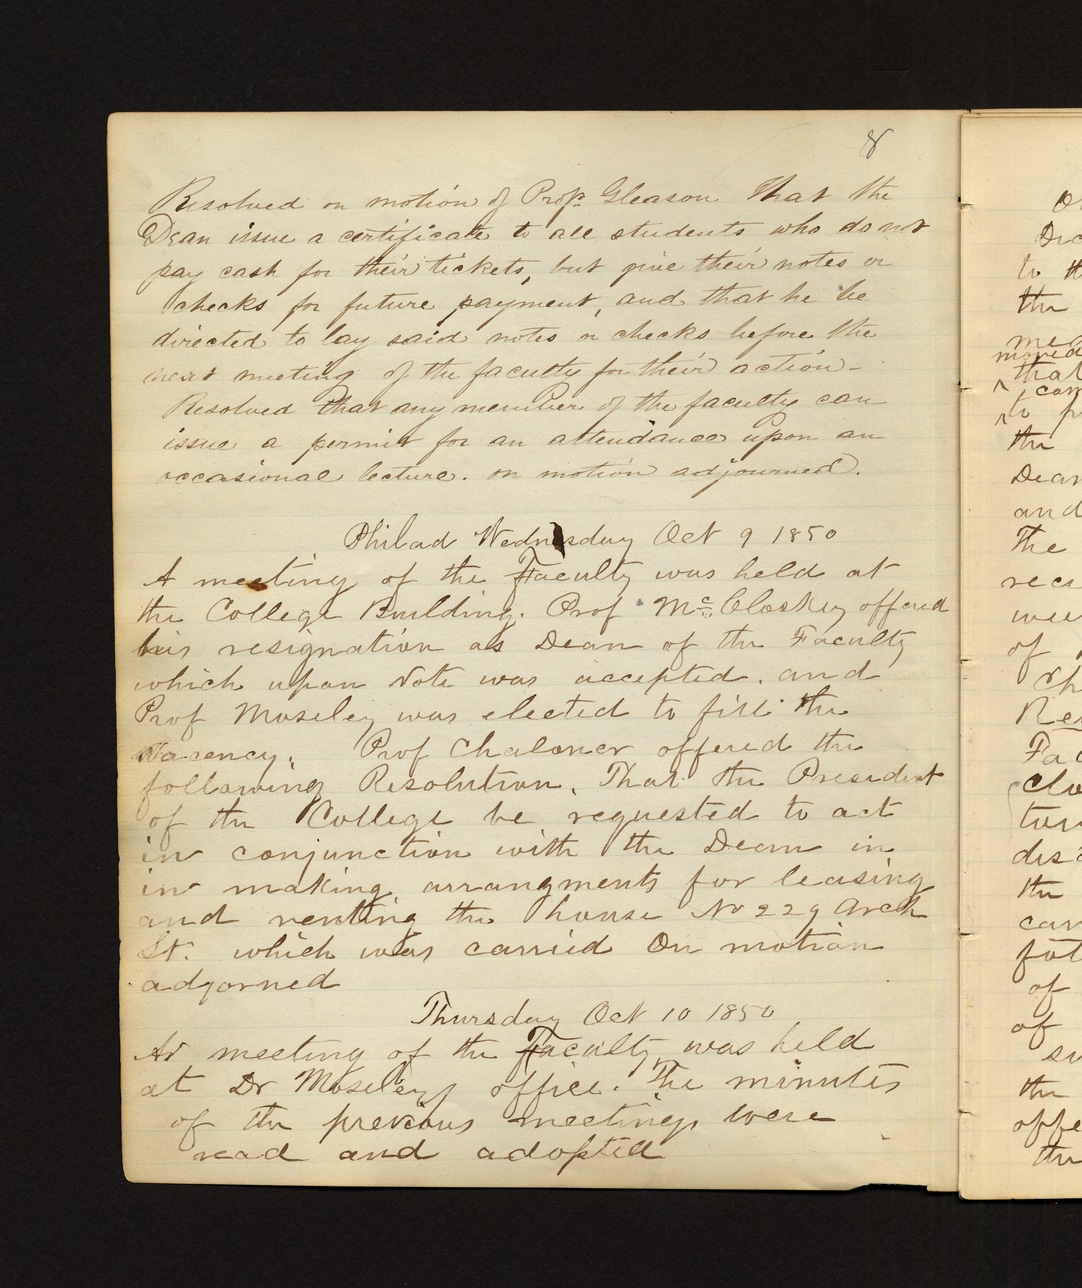 8
Resolved on motion of Prof. Gleason That the
Dean issue a certificate to all students who do not
pay cash for their tickets, but give their notes or
checks for future payment, and that he be
directed to lay said notes or checks before the
next meeting of the faculty for their action –
Resolved that any member of the faculty can
issue a permit for an attendance upon an
occasional lecture. on motion adjourned.
Philad Wednesday Oct 9 1850
A meeting of the Faculty was held at
the College Building. Prof Mc. Closkey offered
his resignation as Dean of the Faculty
which upon vote was accepted. and
Prof Moseley was elected to fill the
vacency. Prof Chaloner offered the
following Resolution. That the President
of the College be requested to act
in conjunction with the Dean in
in making arrangments for leasing
and renting the house No 229 Arch
St. which was carried On motion
adjorned
Thursday Oct 10 1850
A meeting of the Faculty was held
at Dr Moseleys office. The minutes
of the previous meeting were
read and adopted
to
the
that
the
Dean
and
The
of
the
of
of
the
the